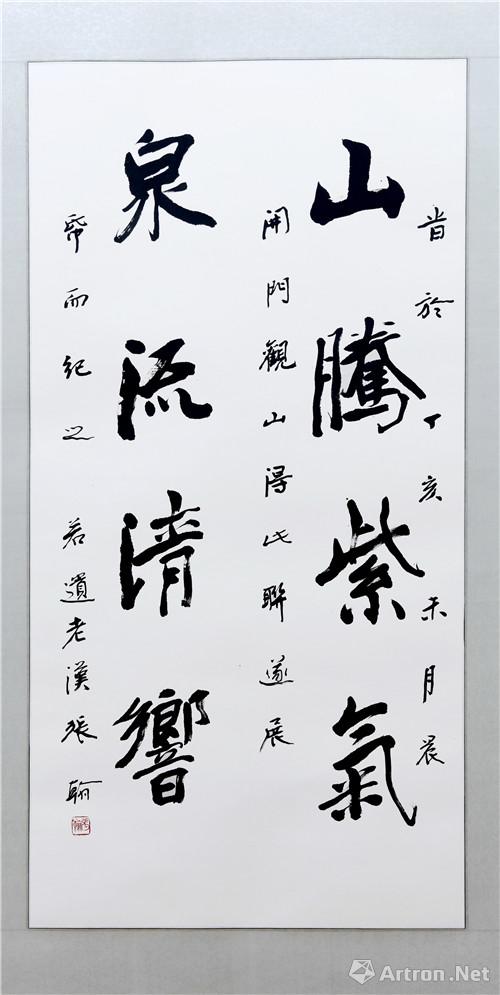 旹於丁亥未月晨
山騰紫氣
開門觀山得此聯遂展
泉流清響
帋而紀之 若遺老漢張翰
Artron.Net